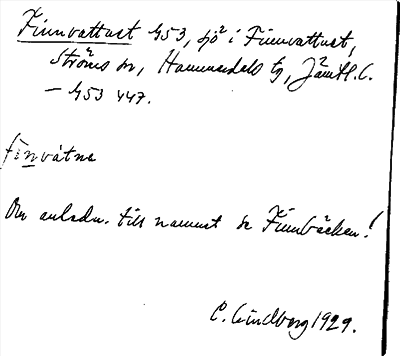 Finnvattnet 453, sjö² i Finnvattnet,
Ströms sn, Hammerdals tg, Jämtl. l.
— 453 447.
finvátne
Om anledn. till namnet se Finnbäcken!
C. Lindberg 1929.